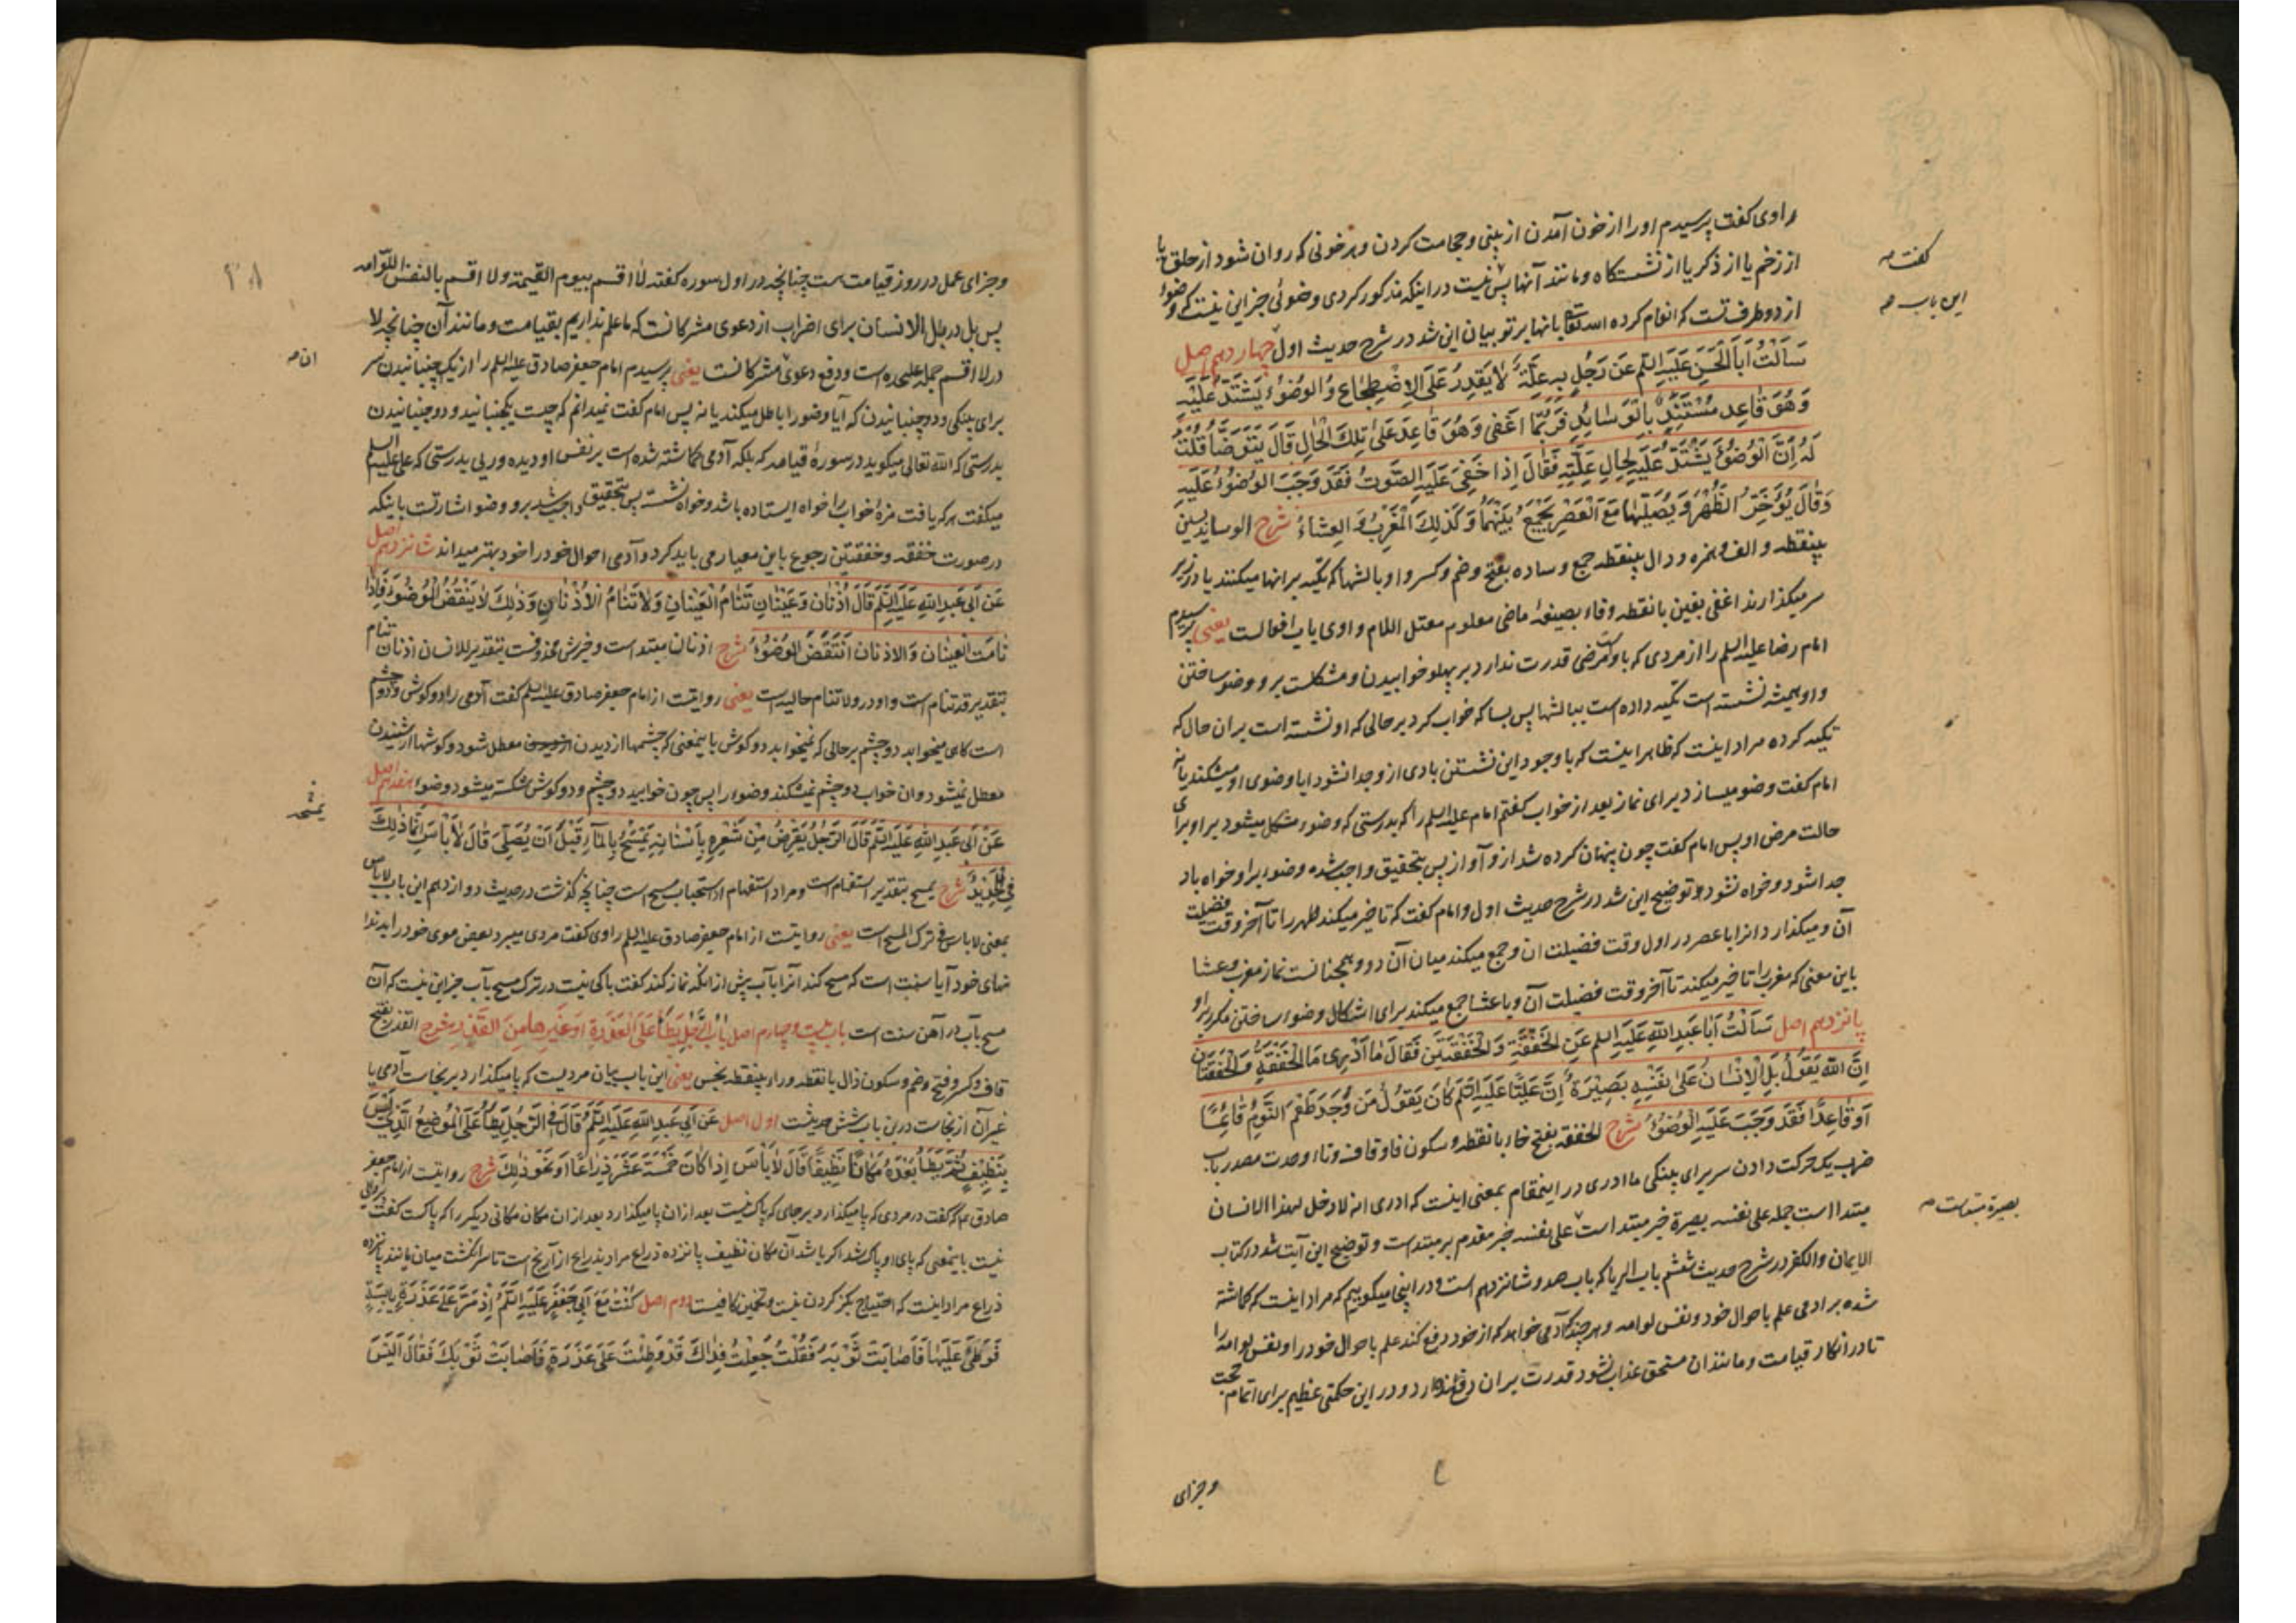 راوی کفت پرسیدم اورا از خون آمدن از بینی و حجامت کردن و هر خونی که روان شود از حلق یا
کفت
از زخم یا از ذکر یا از نشستکاه و مانند آنها پس نیست در اینکه مذکور کردی وضوئی جز این نیست که وضوء
این باب
از دو طرف تست که انعام کرده الله تعالی بانها بر تو بیان این شد در شرح حدیث اول چهاردهم اصل
سَاَلْتُ اَبَا الْحَسَنِ عَلَیْهِ السَّلَمُ عَنْ رَجُلٍ بِهِ عِلَّةٌ لَا یَقْدِرُ عَلَی الِاضْطِجَاعِ وَالْوُضُوءُ یَشْتَدُّ عَلَیْهِ
وَهُوَ قَاعِدٌ مُسْتَنِدٌ بِالْوَسَائِدِ فَرُبَّمَا اَغْفٰی وَهُوَ قَاعِدٌ عَلٰی تِلْكَ الْحَالِ قَالَ یَتَوَضَّأُ قُلْتُ
لَهُ اِنَّ الْوُضُوءَ یَشْتَدُّ عَلَیْهِ لِحَالِ عِلَّتِهِ فَقَالَ اِذَا خَفِیَ عَلَیْهِ الصَّوْتُ فَقَدْ وَجَبَ الْوُضُوءُ عَلَیْهِ
وَقَالَ یُؤَخِّرُ الظُّهْرَ وَیُصَلِّیهَا مَعَ الْعَصْرِ یَجْمَعُ بَیْنَهُمَا وَکَذٰلِكَ الْمَغْرِبُ وَالْعِشَاءُ شرح الوساید بسین
بینقطه و الف و همزه و دال بینقطه جمع وساده بفتح و ضم و کسر واو بالشها که تکیه بر انها میکنند یا در زیر
سر میکذارند اغفی بغین با نقطه و فاء بصیغهٔ ماضی معلوم معتل اللام واوی باب افعالست یعنی پرسیدم
امام رضا علیه السلم را از مردی که باوست مرضی قدرت ندارد بر پهلو خوابیدن و مشکلست برو وضو ساختن
و او همیشه نشسته است تکیه داده است ببالشها پس بسا که خواب کرد بر حالی که او نشسته است بران حال که
تکیه کرده مراد اینست که ظاهرا اینست که با وجود این نشستن بادی ازو جدا نشود ایا وضوی او میشکند یا نه
امام کفت وضو میسازد برای نماز بعد از خواب کفتم امام علیه السلم را که بدرستی که وضوء مشکل میشود بر او برای
حالت مرض او پس امام کفت چون پنهان کرده شد ازو آواز پس بتحقیق واجب شده وضوء برا و خواه باد
جدا شود و خواه نشود و توضیح این شد در شرح حدیث اول و امام کفت که تاخیر میکند ظهر را تا آخر وقت فضیلت
آن و میکذارد انرا با عصر در اول وقت فضیلت ان و جمع میکند میان آن دو و همچنانست نماز مغرب و عشا
باین معنی که مغرب را تاخیر میکند تا آخر وقت فضیلت آن و با عشا جمع میکند برای اشکال وضوء ساختن مکرر براو
پانزدهم اصل سَاَلْتُ اَبَا عَبْدِ اللهِ عَلَیْهِ السلم عَنِ الْخَفْقَةِ وَالْخَفْقَتَیْنِ فَقَالَ مَا اَدْرِی مَا الْخَفْقَةُ وَالْخَفْقَتَانِ
اِنَّ اللهَ یَقُولُ بَلِ الْاِنْسَانُ عَلٰی نَفْسِهِ بَصِیْرَةٌ اِنَّ عَلِیًّا عَلَیْهِ السَّلَمُ کَانَ یَقُولُ مَنْ وَجَدَ طَعْمَ النَّوْمِ قَائِمًا
اَوْ قَاعِدًا فَقَدْ وَجَبَ عَلَیْهِ الْوُضُوءُ شرح الخفقه بفتح خاء با نقطه و سکون فا و قاف و تاء وحدت مصدر باب
ضرب یک حرکت دادن سر برای پینکی ما ادری در اینمقام بمعنی اینست که ادری انه لا دخل لهذا الانسان
مبتدا است جمله علی نفسه بصیرة خبر مبتدا است علی نفسه خبر مقدم بر مبتدست و توضیح این آیت شد در کتاب
بصیرة مبتداست
الایمان والکفر در شرح حدیث ششم باب الریا که باب صد و شانزدهم است و در اینجا میکوییم که مراد اینست که کماشته
شده بر ادمی علم باحوال خود و نفس لوامه و هر چند که آدمی خواهد که از خود دفع کند علم باحوال خود را و نفس لوامه را
تا در انکار قیامت و مانند ان مستحق عذاب نشود قدرت بر ان دفع ندارد و در این حکمتی عظیم برای اتمام حجت
وجزای
۲۸
وجزای عمل در روز قیامت هست چنانچه در اول سوره کفته لا اقسم بیوم القیمة ولا اقسم بالنفس اللوّامه
پس بل در بل الانسان برای اضراب از دعوی مشرکانست که ما علم نداریم بقیامت و مانند آن چنانچه لا
در لا اقسم جمله علیحده است و دفع دعوی مشرکانست یعنی پرسیدم امام جعفر صادق علیه السلم را از یک جنبانیدن سر
برای پینکی و دو جنبانیدن که آیا وضو را باطل میکند یا نه پس امام کفت نمیدانم که چیست یکجنبانید و دو جنبانیدن
بدرستی که الله تعالی میکوید در سورهٔ قیامه که بلکه آدمی کماشته شده است بر نفس او دیده وری بدرستی که علی علیه السلم
میکفت هر که یافت مزهٔ خواب را خواه ایستاده باشد و خواه نشسته پس بتحقیق واجب شد برو وضو اشارتست باینکه
در صورت خفقه و خفقتین رجوع باین معیار می باید کرد و آدمی احوال خود را خود بهتر میداند شانزدهم اصل
عَنْ اَبِی عَبْدِ اللهِ عَلَیْهِ السَّلَمُ قَالَ اُذُنَانِ وَعَیْنَانِ تَنَامُ الْعَیْنَانِ وَلَا تَنَامُ الْاُذُنَانِ وَذٰلِكَ لَا یَنْقُضُ الْوُضُوءَ فَاِذَا
نَامَتِ الْعَیْنَانِ وَالْاُذُنَانِ انْتَقَضَ الْوُضُوءُ شرح اذنان مبتدا است و خبرش محذوفست بتقدیر للانسان اذنان تنام
بتقدیر قد تنام است و او در ولا تنام حالیه است یعنی روایتست از امام جعفر صادق علیه السلم کفت آدمی را دو کوش و دو چشم
است کاهی میخوابد دو چشم بر حالی که نمیخوابد دو کوش باینمعنی که چشمها از دیدن معطل شود و کوشها از شنیدن
معطل نمیشود و ان خواب دو چشم نمیشکند وضو را پس چون خوابید دو چشم و دو کوش شکسته میشود وضوء هفدهم اصل
عَنْ اَبِی عَبْدِ اللهِ عَلَیْهِ السَّلَمُ قَالَ الرَّجُلُ یَقْرِضُ مِنْ شَعْرِهِ بِاَسْنَانِهِ یَمْسَحُ بِالْمَاءِ قَبْلَ اَنْ یُصَلِّیَ قَالَ لَا بَأْسَ اِنَّمَا ذٰلِكَ
فِی الْحَدِیْدِ شرح یمسح بتقدیر استفهام است و مراد استفهام از استحباب مسح است چنانچه کذشت در حدیث دوازدهم این باب لا باس
بمعنی لا باس فی ترک المسح است یعنی روایتست از امام جعفر صادق علیه السلم راوی کفت مردی میبرد بعض موی خود را بدندا
نهای خود آیا سنت است که مسح کند انرا بآب پیش از انکه نماز کند کفت باکی نیست در ترک مسح بآب جز این نیست که آن
مسح بآب در آهن سنت است باب بیست و چهارم اصل بَابُ الرَّجُلِ یَطَأُ عَلَی الْعَذِرَةِ اَوْ غَیْرِهَا مِنَ الْقَذَرِ شرح القذر بفتح
قاف و کسر و فتح و ضم و سکون ذال با نقطه و راء بینقطه نجس یعنی این باب بیان مردیست که پا میکذارد بر نجاست آدمی یا
غیر آن از نجاست درین باب شش حدیثست اول اصل عَنْ اَبِی عَبْدِ اللهِ عَلَیْهِ السَّلَمُ قَالَ فِی الرَّجُلِ یَطَأُ عَلَی الْمَوْضِعِ الَّذِی لَیْسَ
بِنَظِیْفٍ ثُمَّ یَطَأُ بَعْدَهُ مَکَانًا نَظِیْفًا قَالَ لَا بَأْسَ اِذَا کَانَ خَمْسَةَ عَشَرَ ذِرَاعًا اَوْ نَحْوَ ذٰلِكَ شرح روایتست از امام جعفر
صادق ع که کفت در مردی که پا میکذارد بر جای که پاک نیست بعد ازان پا میکذارد بعد ازان مکان مکانی دیکر را که پاکست کفت
نیست باینمعنی که پای او پاک شد اکر باشد آن مکان نظیف پانزده ذراع مراد بذراع از آرنج است تا سر انکشت میان یا مانند پانزده
ذراع مراد اینست که احتیاج بکز کردن نیست و تخمین کافیست دوم اصل کُنْتُ مَعَ اَبِی جَعْفَرٍ عَلَیْهِ السَّلَمُ اِذْ مَرَّ عَلٰی عَذِرَةٍ یَابِسَةٍ
فَوَطِئَ عَلَیْهَا فَاَصَابَتْ ثَوْبَهُ فَقُلْتُ جُعِلْتُ فِدَاكَ قَدْ وَطِئْتَ عَلٰی عَذِرَةٍ فَاَصَابَتْ ثَوْبَكَ فَقَالَ اَلَیْسَ